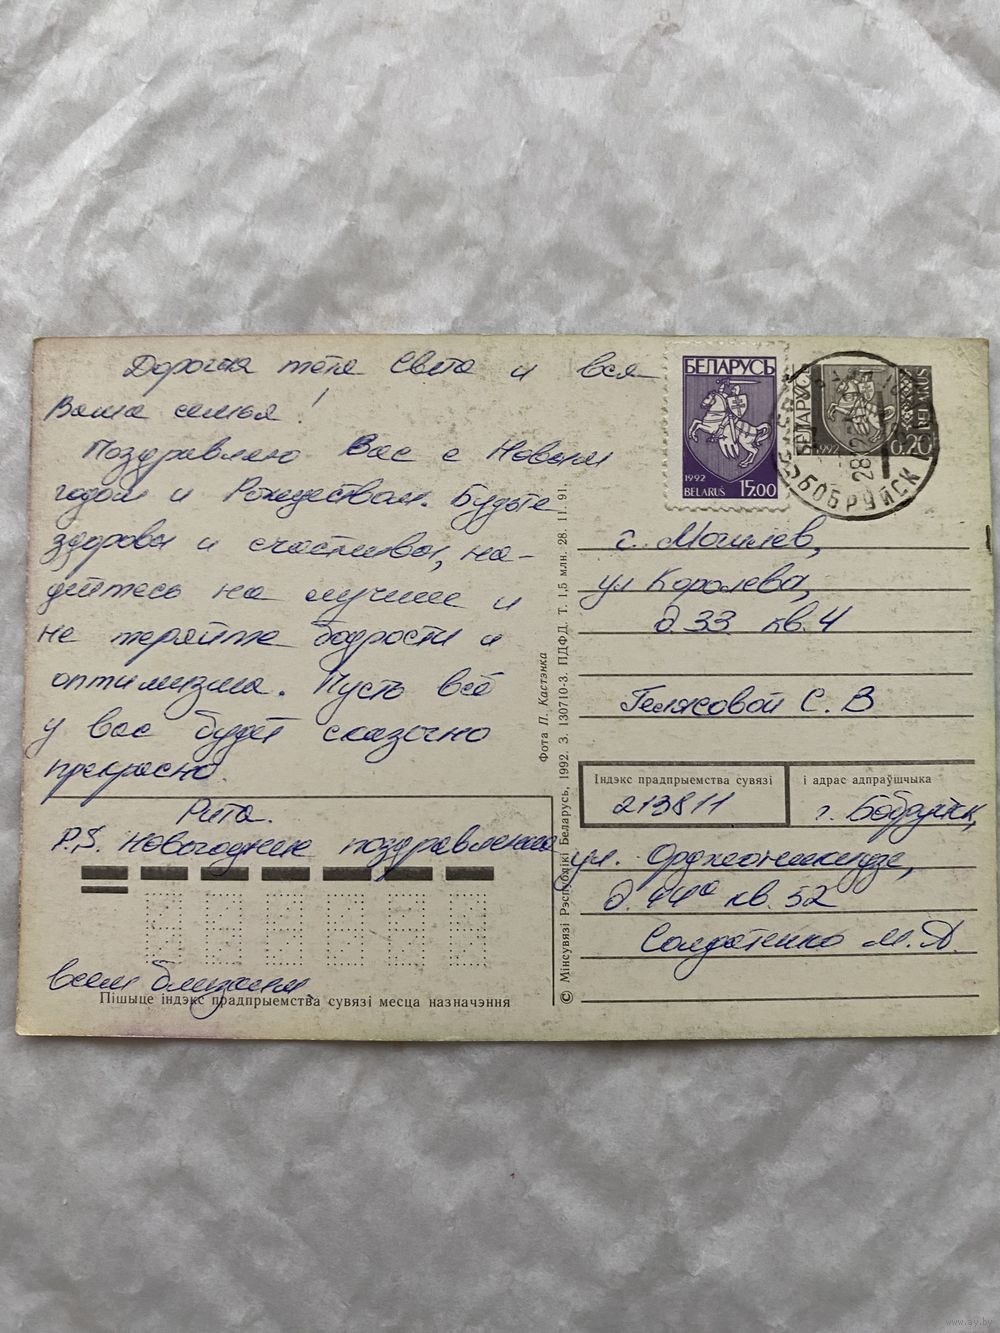 Дорогая тётя Света и вся
Ваша семья!
Поздравляю Вас с Новым
годом и Рождеством. Будьте
здоровы и счастливы, на-
дейтесь на лучшее и
не теряйте бодрости и
оптимизма. Пусть всё
у вас будет сказочно
прекрасно.
Рита.
P.S. Новогодние поздравления
всем близким.
Пішыце індэкс прадпрыемства сувязі месца назначэння
Фота П. Кастэнка
© Мінсувязі Рэспублікі Беларусь, 1992. З. 130710-3. ПДФД. Т. 1,5 млн. 28. 11. 91.
БЕЛАРУСЬ
1992
BELARUS 15.00
БЕЛАРУСЬ
1992
0.20
BELARUS
БОБРУЙСК
28 12
г. Могилёв,
ул Королёва,
д. 33 кв. 4
С. В
Індэкс прадпрыемства сувязі
і адрас адпраўшчыка
213811
г. Бобруйск,
ул. Орджоникидзе,
д. 44а кв. 52
Солдатенко М. А.
www.ay.by